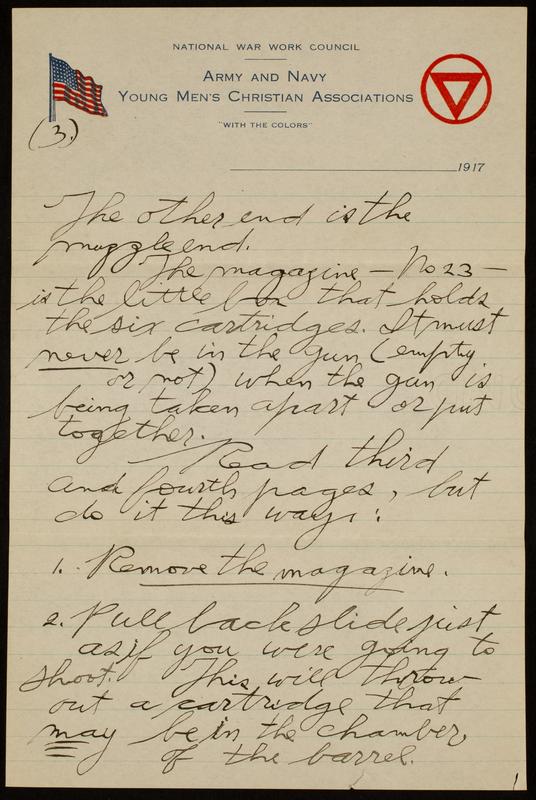 NATIONAL WAR WORK COUNCIL
ARMY AND NAVY
YOUNG MEN'S CHRISTIAN ASSOCIATIONS
"WITH THE COLORS"
(3.)
1917
The other end is the
muzzle end.
The magazine — No 23 —
is the little box that holds
the six cartridges. It must
never be in the gun (empty
or not) when the gun is
being taken apart or put
together.
Read third
and fourth pages, but
do it this way:
1. Remove the magazine.
2. Pull back slide just
as if you were going to
shoot. This will throw
out a cartridge that
may be in the chamber
of the barrel.